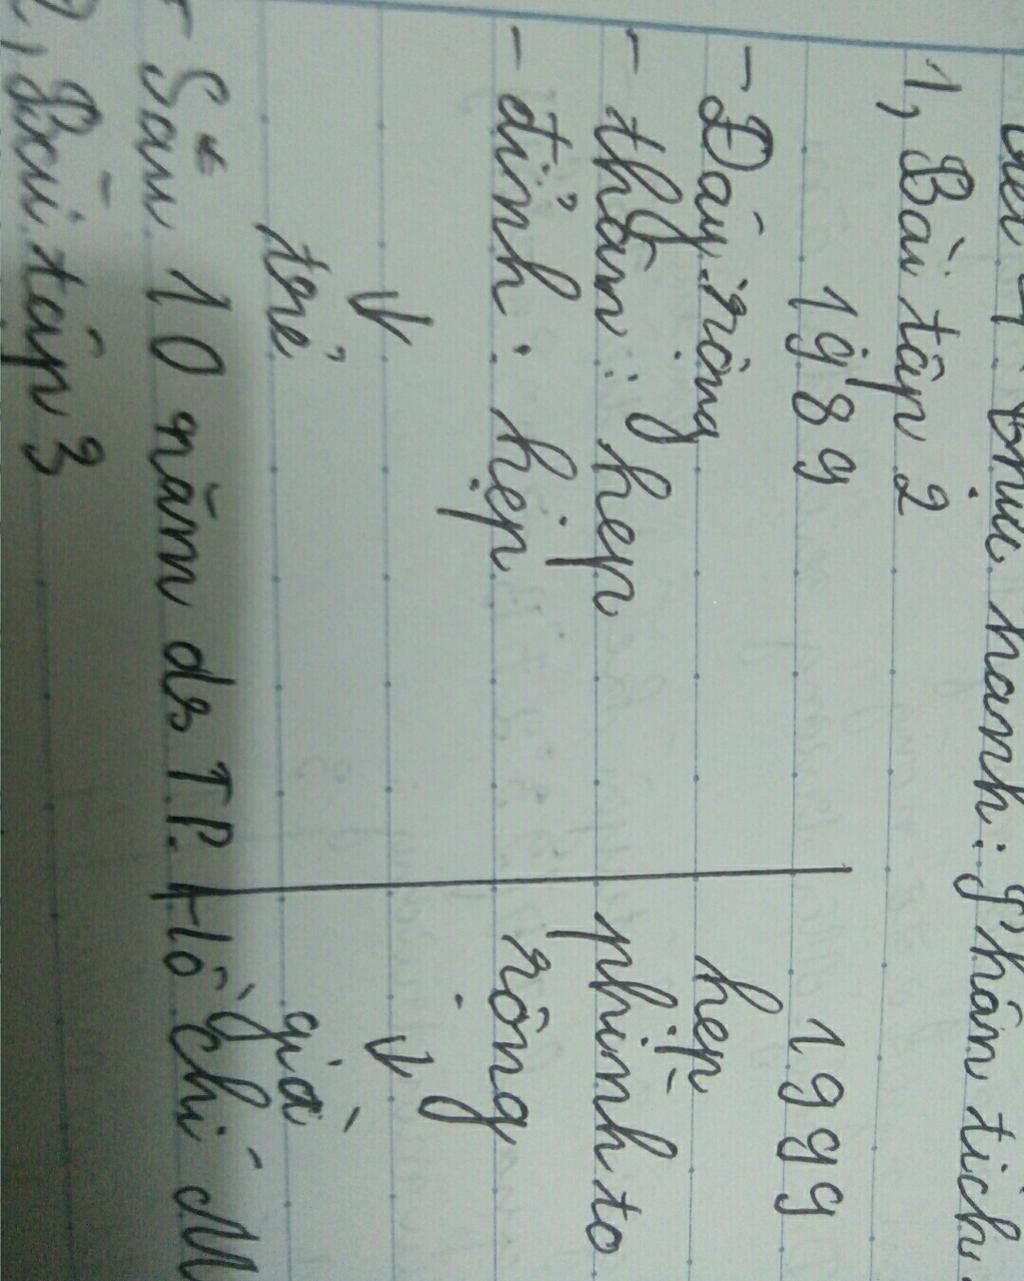 hành: Phân tích
1, Bài tập 2
1989 1999
- Đáy: rộng hẹp
- thân: hẹp phình to
- đỉnh: hẹp rộng
↓ ↓
trẻ già
- Sau 10 năm ds T.P. Hồ Chí M
2, Bài tập 3